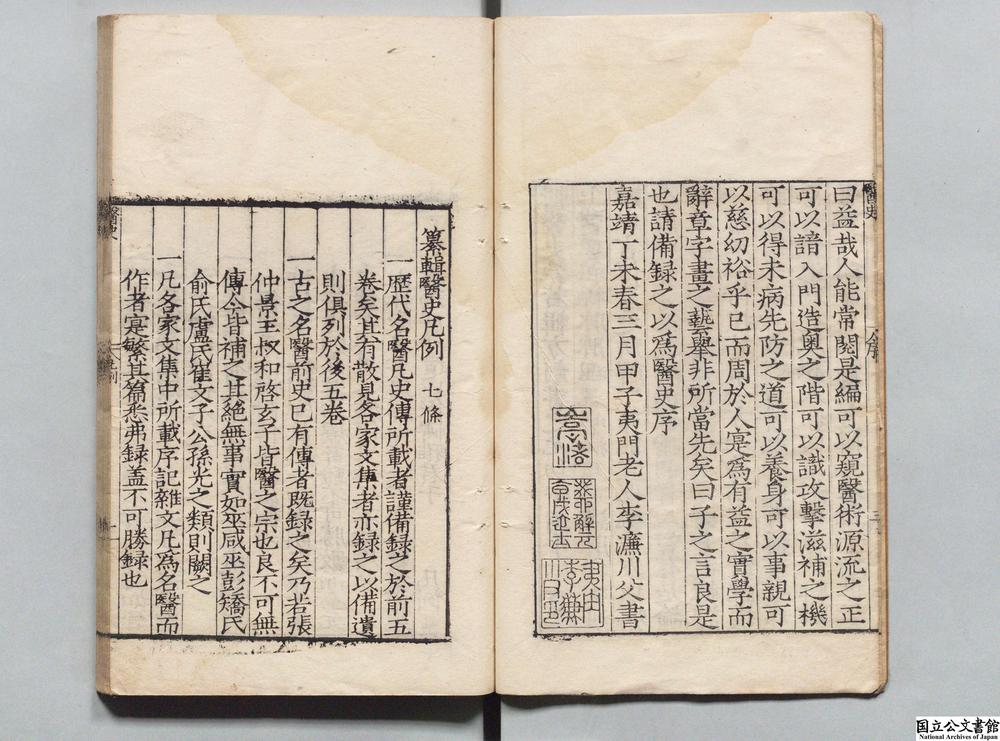 曰益哉人能常閱是編可以窺醫術源流之正
可以諳入門造奧之階可以識攻擊滋補之機
可以得未病先防之道可以養身可以事親可
以慈幼裕乎已而周於人寔為有益之實學而
辭章字畫之藝舉非所當先矣曰子之言良是
也請備録之以為醫史序
嘉靖丁未春三月甲子夷門老人李濂川父書
纂輯醫史凡例 七條
一歷代名醫凡史傳所載者謹備録之於前五
卷矣其有散見各家文集者亦録之以備遺
則俱列於後五卷
一古之名醫前史已有傳者既録之矣乃若張
仲景王叔和啓玄子皆醫之宗也良不可無
傳今皆補之其絕無事實如巫咸巫彭矯氏
俞氏盧氏崔文子公孫光之類則闕之
一凡各家文集中所載序記雜文凡為名醫而
作者寔繁其篇悉弗録蓋不可勝録也
国立公文書館
National Archives of Japan